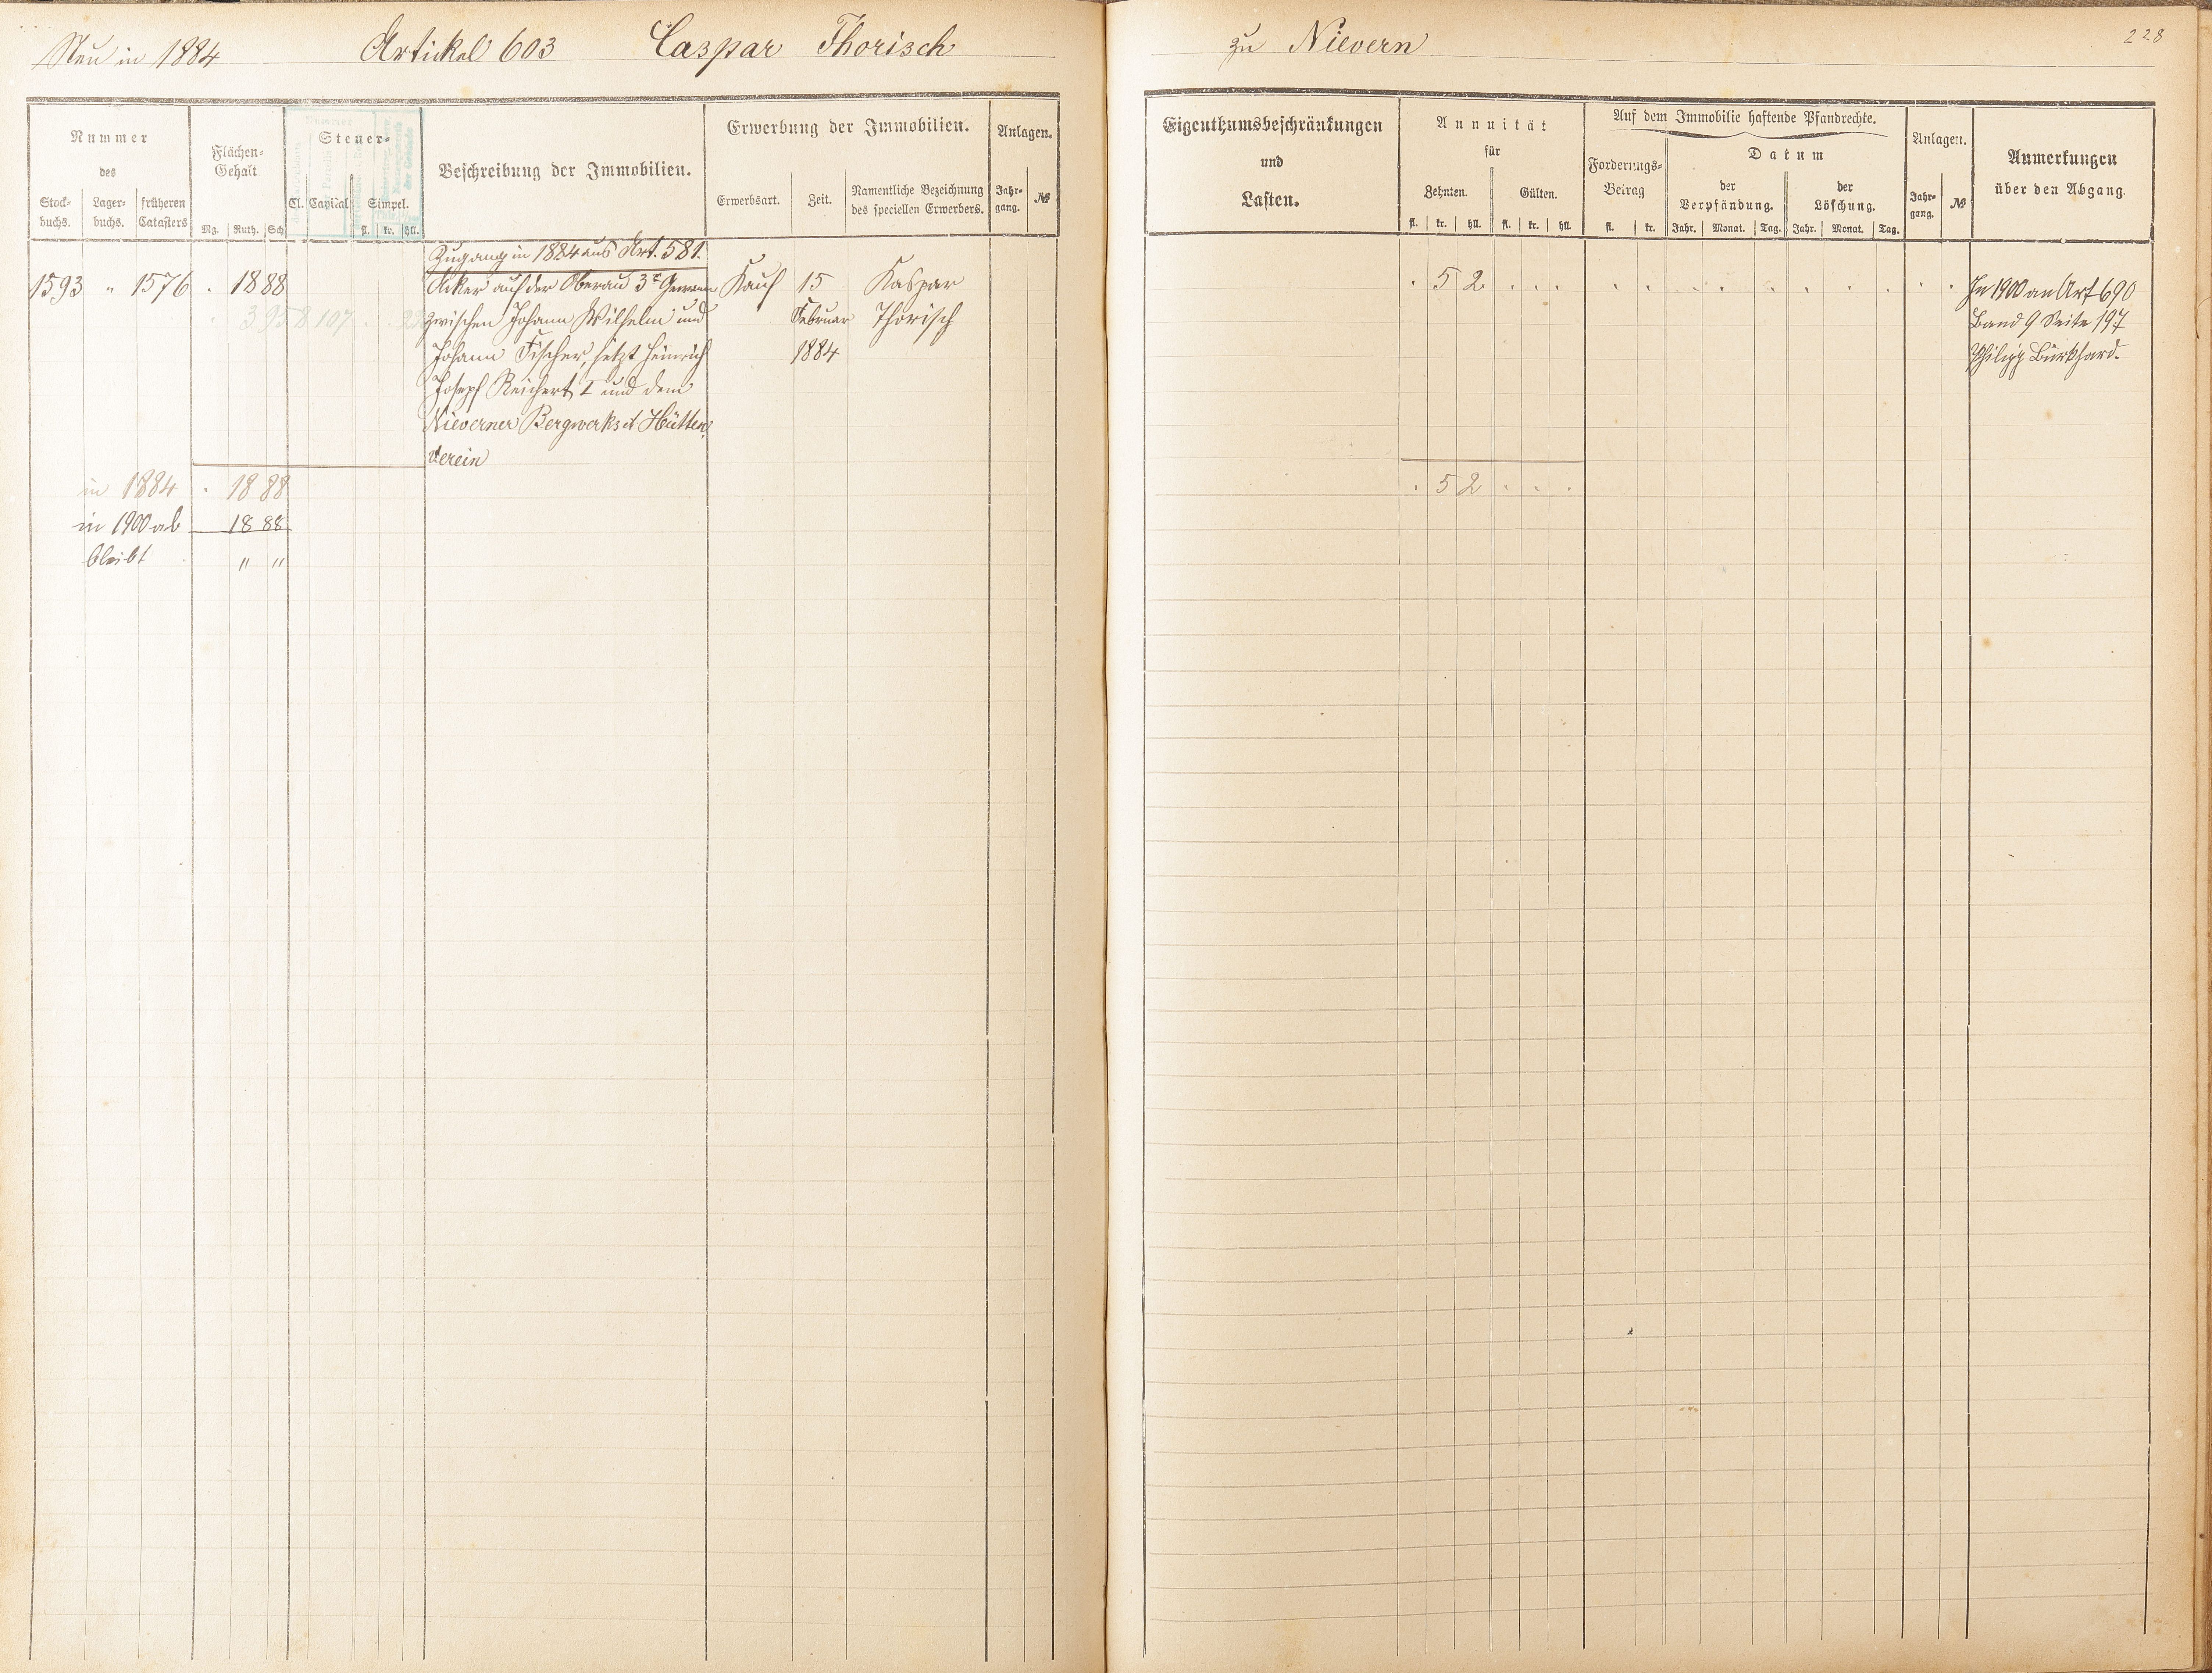 Neu in 1884 Artickel 603 Caspar Thorisch
Nummer
des
Stock-
buchs.
Lager-
buchs.
früheren
Catasters
Flächen-
Gehalt
Mg. Ruth. Sch
Steuer-
Cl. Capital Simpel.
fl. kr. hll.
Beschreibung der Immobilien.
Erwerbung der Immobilien.
Erwerbsart. Zeit.
Namentliche Bezeichnung
des speciellen Erwerbers.
Anlagen.
Jahr-
gang.
№
Zugang in 1884 aus Art. 581.
1593 " 1576 . 18 88
3 95 8 107
Acker auf der Oberau 3r Gewann
zwischen Johann Wilhelm und
Johann Fischer, jetzt Heinrich
Joseph Reichert I und dem
Nieverner Bergwerks et Hütten
verein
Kauf
15
Februar
1884
Kaspar
Thorisch
in 1884 . 18 88
in 1900 ab 18 88
bleibt " "
zu Nievern
228
Eigenthumsbeschränkungen
und
Lasten.
Annuität
für
Zehnten. Gülten.
fl. kr. hll. fl. kr. hll.
Auf dem Immobilie haftende Pfandrechte.
Forderungs-
Betrag
fl. kr.
Datum
der
Verpfändung.
Jahr. Monat. Tag.
der
Löschung.
Jahr. Monat. Tag.
Anlagen.
Jahr-
gang.
№
Anmerkungen
über den Abgang
. 5 2 . . .
In 1900 an Art 690
Band 9 Seite 197
Philipp Burkhard.
. 5 2 . . .